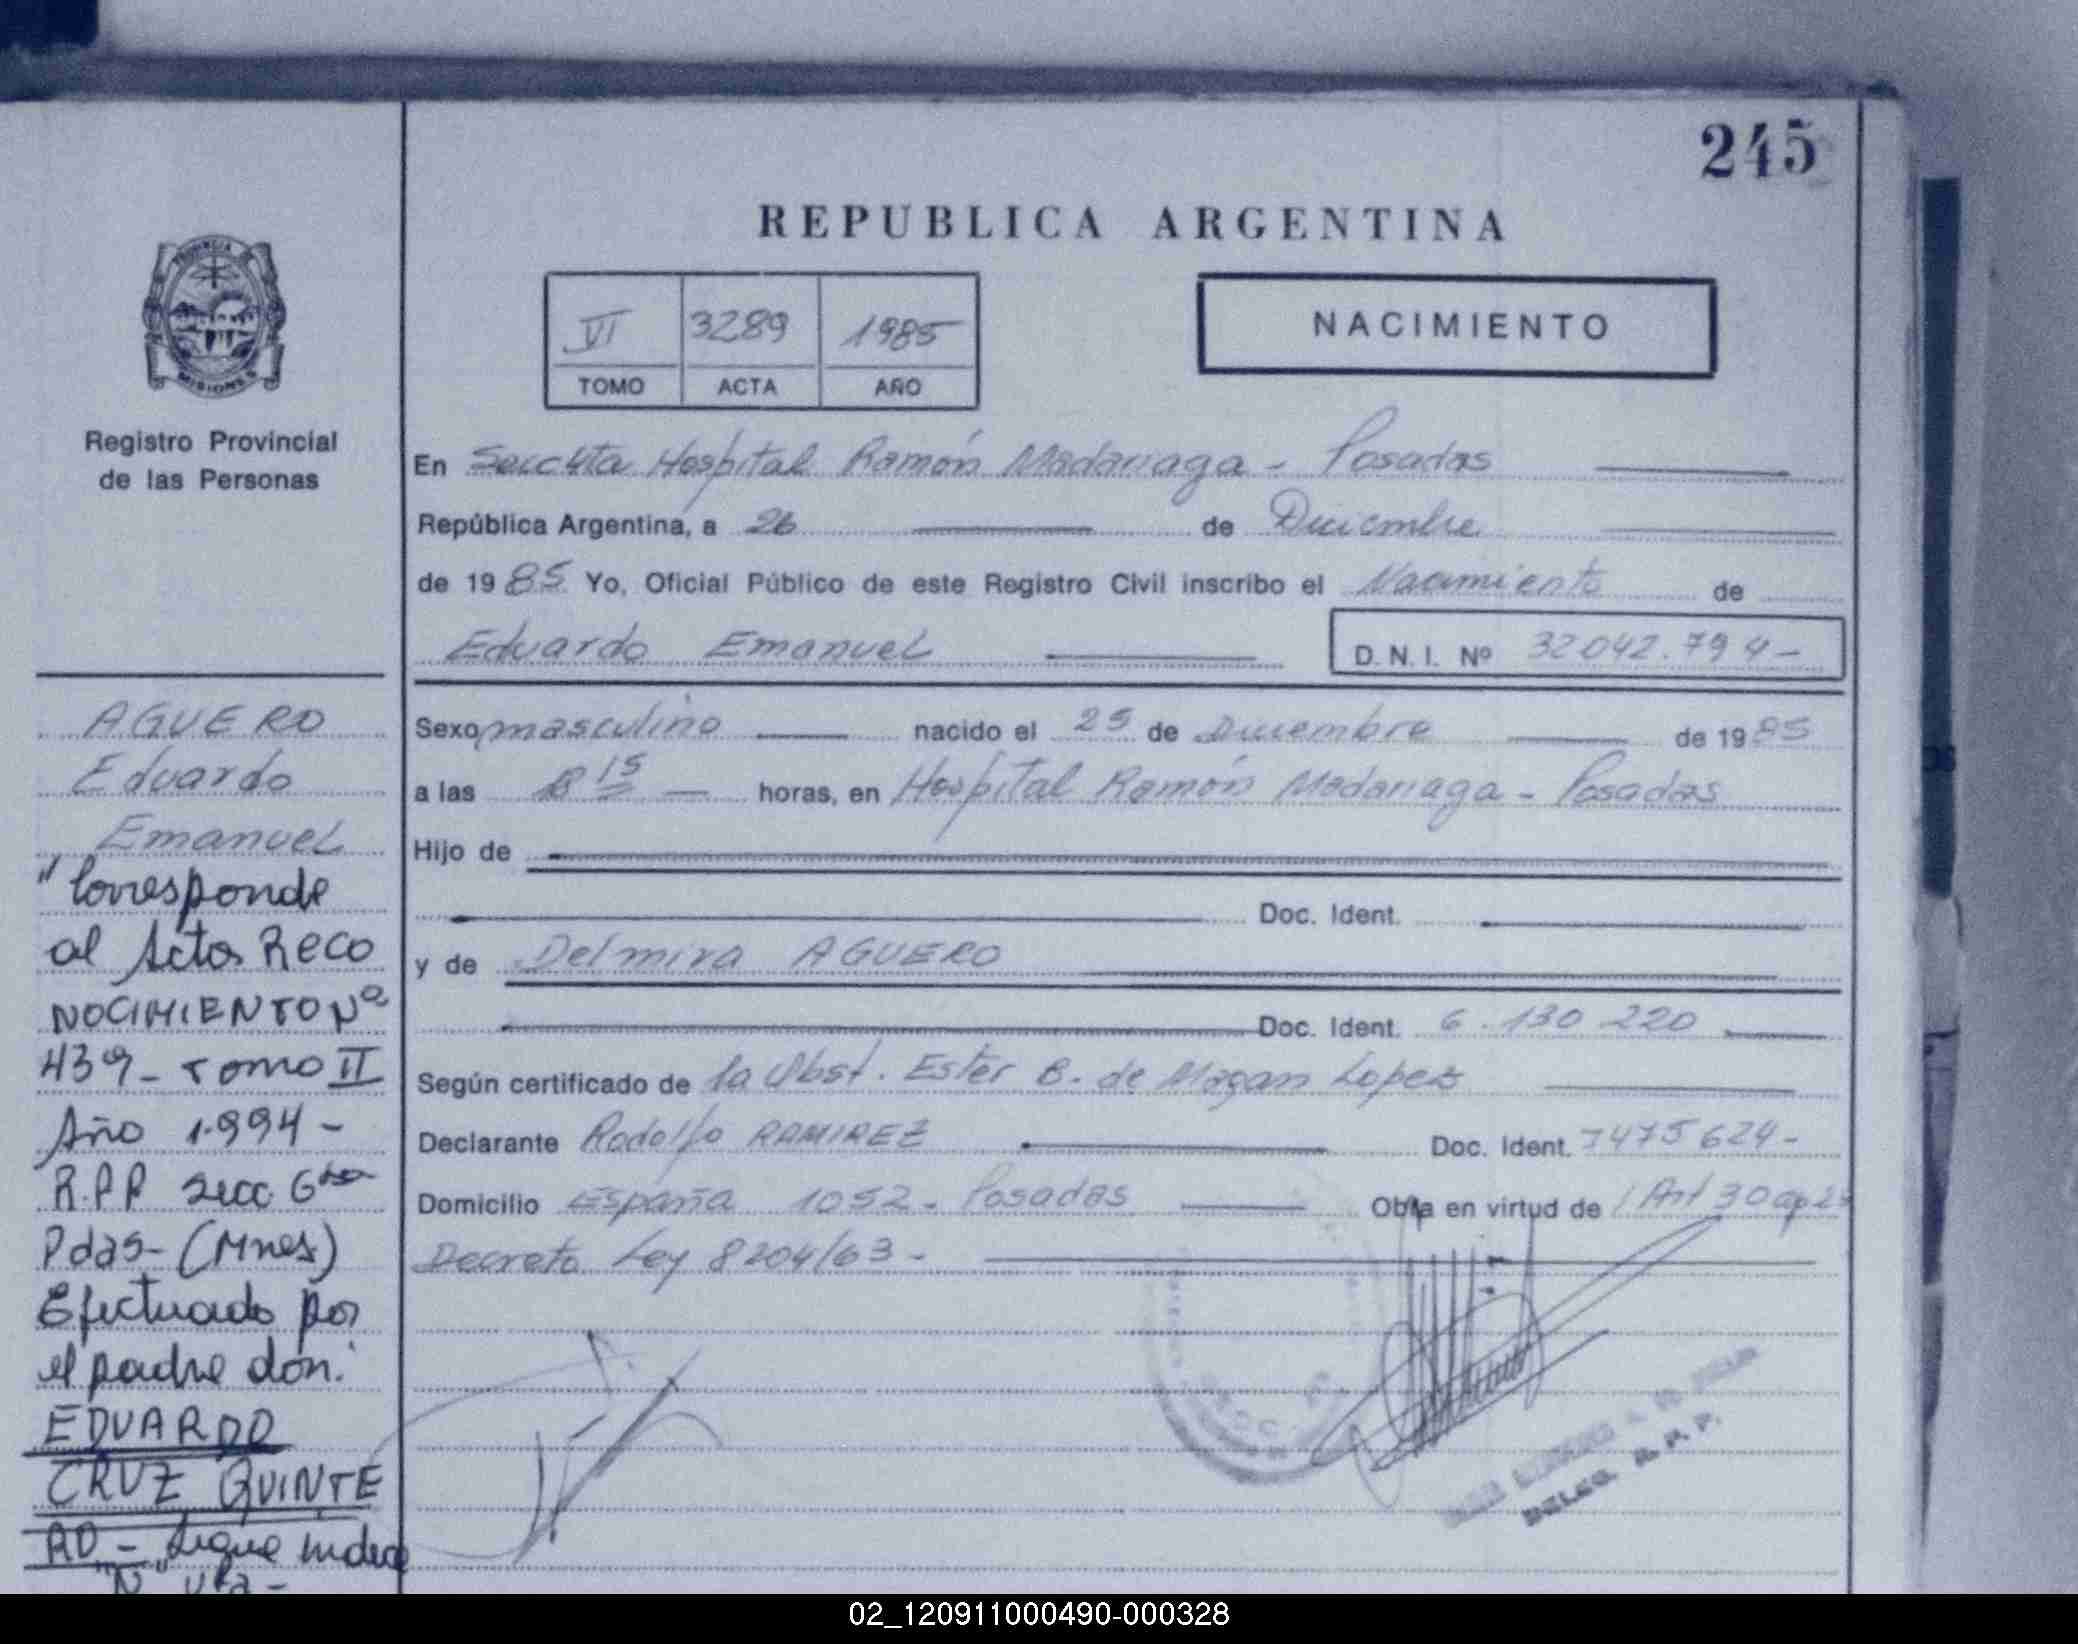 245
REPUBLICA ARGENTINA
VI 3289 1985
TOMO ACTA AÑO
NACIMIENTO
PROVINCIA
MISIONES
Registro Provincial
de las Personas
En Secc 4ta Hospital Ramón Madariaga - Posadas
República Argentina, a 26 de Diciembre
de 1985 Yo, Oficial Público de este Registro Civil inscribo el Nacimiento de
Eduardo Emanuel D.N.I. Nº 32042.794-
Sexo masculino nacido el 25 de Diciembre de 1985
a las 8 15 horas, en Hospital Ramón Madariaga - Posadas
Hijo de
Doc. Ident.
y de Delmira AGUERO
Doc. Ident. 6.130 220
Según certificado de la Obst. Ester B. de Lopez
Declarante Rodolfo RAMIREZ Doc. Ident. 7475624-
Domicilio España 1052- Posadas Obra en virtud de Art 30
Decreto Ley 8204/63-
DELEG. R. P. P.
AGUERO
Eduardo
Emanuel
"Corresponde
al Acta RECO
NOCIMIENTO Nº
439- TOMO II
Año 1.994-
R.P.P Secc 6ta
Pdas- (Mnes)
Efectuado por
el padre don:
EDUARDO
CRUZ QUINTE
RO- Sigue indice
"N" vta-
02_120911000490-000328